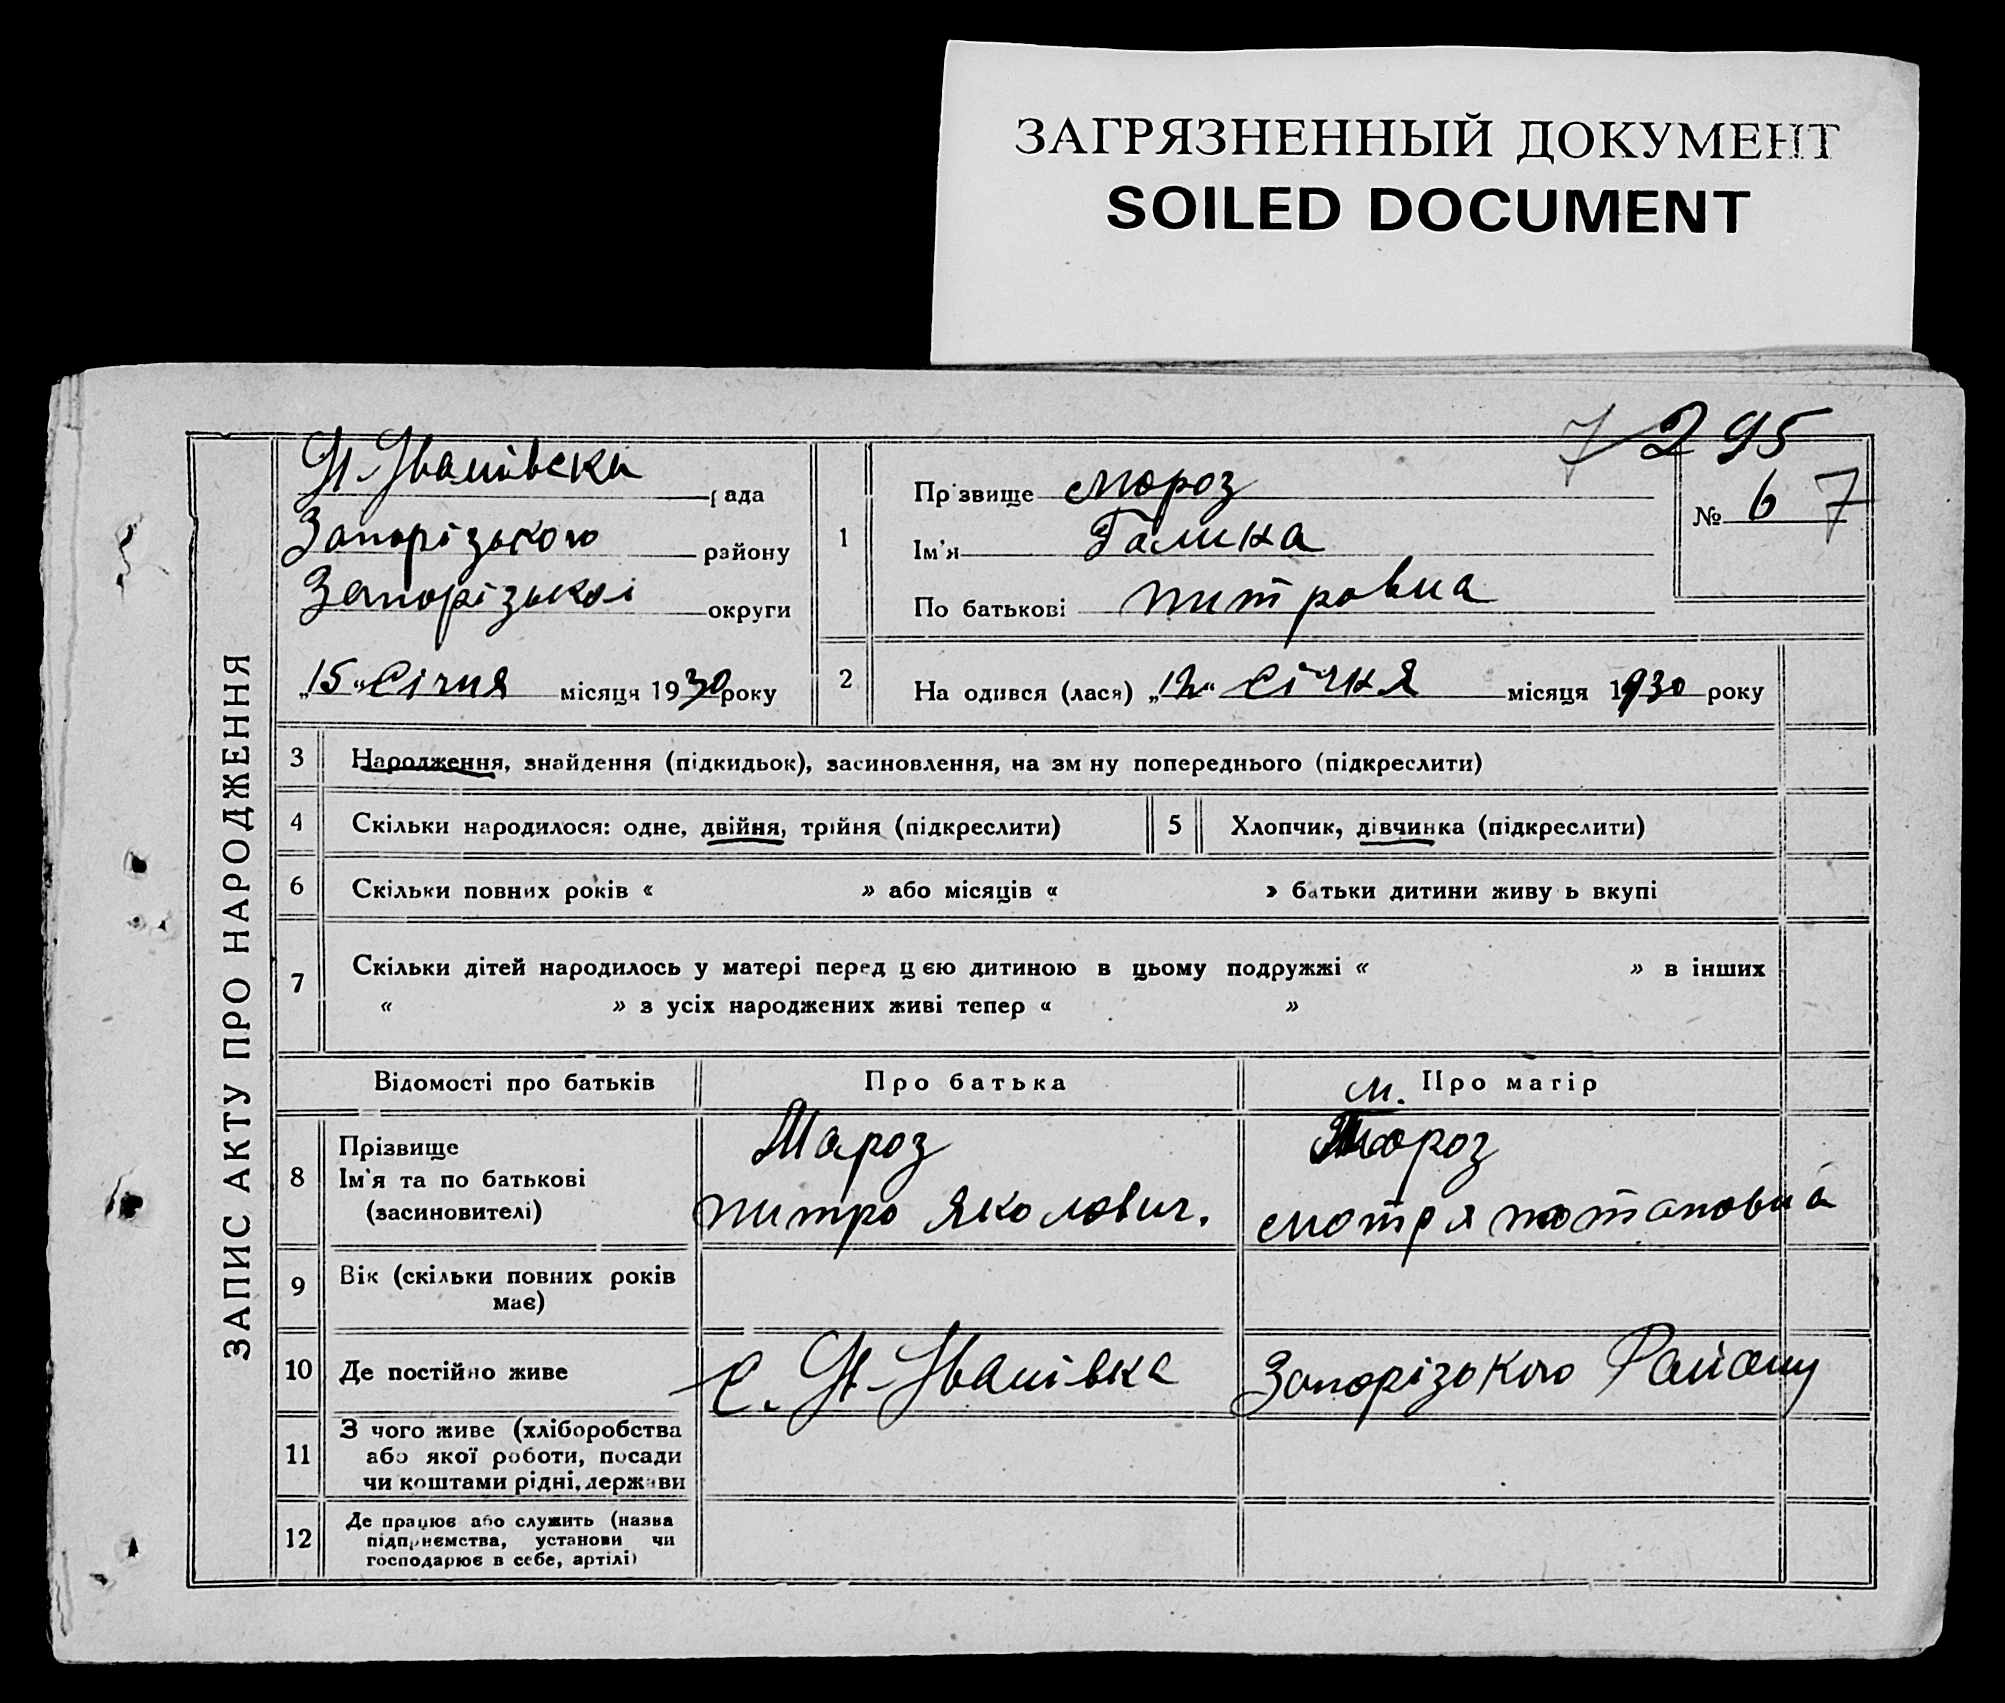 ЗАГРЯЗНЕННЫЙ ДОКУМЕНТ
SOILED DOCUMENT
7 295
ЗАПИС АКТУ ПРО НАРОДЖЕННЯ
Н-Іванівська рада
Запорізького району
Запорізької округи
„15“ Січня місяця 1930 року
1
Прізвище Мороз
Ім'я Галина
По батькові Питровна
№ 6 7
2 На одився (лася) „12“ Січня місяця 1930 року
3 Народження, знайдення (підкидьок), засиновлення, на зм ну попереднього (підкреслити)
4 Скільки народилося: одне, двійня, трійня (підкреслити)
5 Хлопчик, дівчинка (підкреслити)
6 Скільки повних років « » або місяців « » батьки дитини живу ь вкупі
7 Скільки дітей народилось у матері перед цією дитиною в цьому подружжі « » в інших
« » з усіх народжених живі тепер « »
Відомості про батьків Про батька Про матір
8 Прізвище
Ім'я та по батькові
(засиновителі)
Мароз
Питро Яковович.
М.
Мороз
Мотря Потаповна
9 Вік (скільки повних років
має)
10 Де постійно живе с. Н-Іванівка Запорізького Району
11 З чого живе (хліборобства
або якої роботи, посади
чи коштами рідні, держави
12 Де працює або служить (назва
підприємства, установи чи
господарює в себе, артілі)